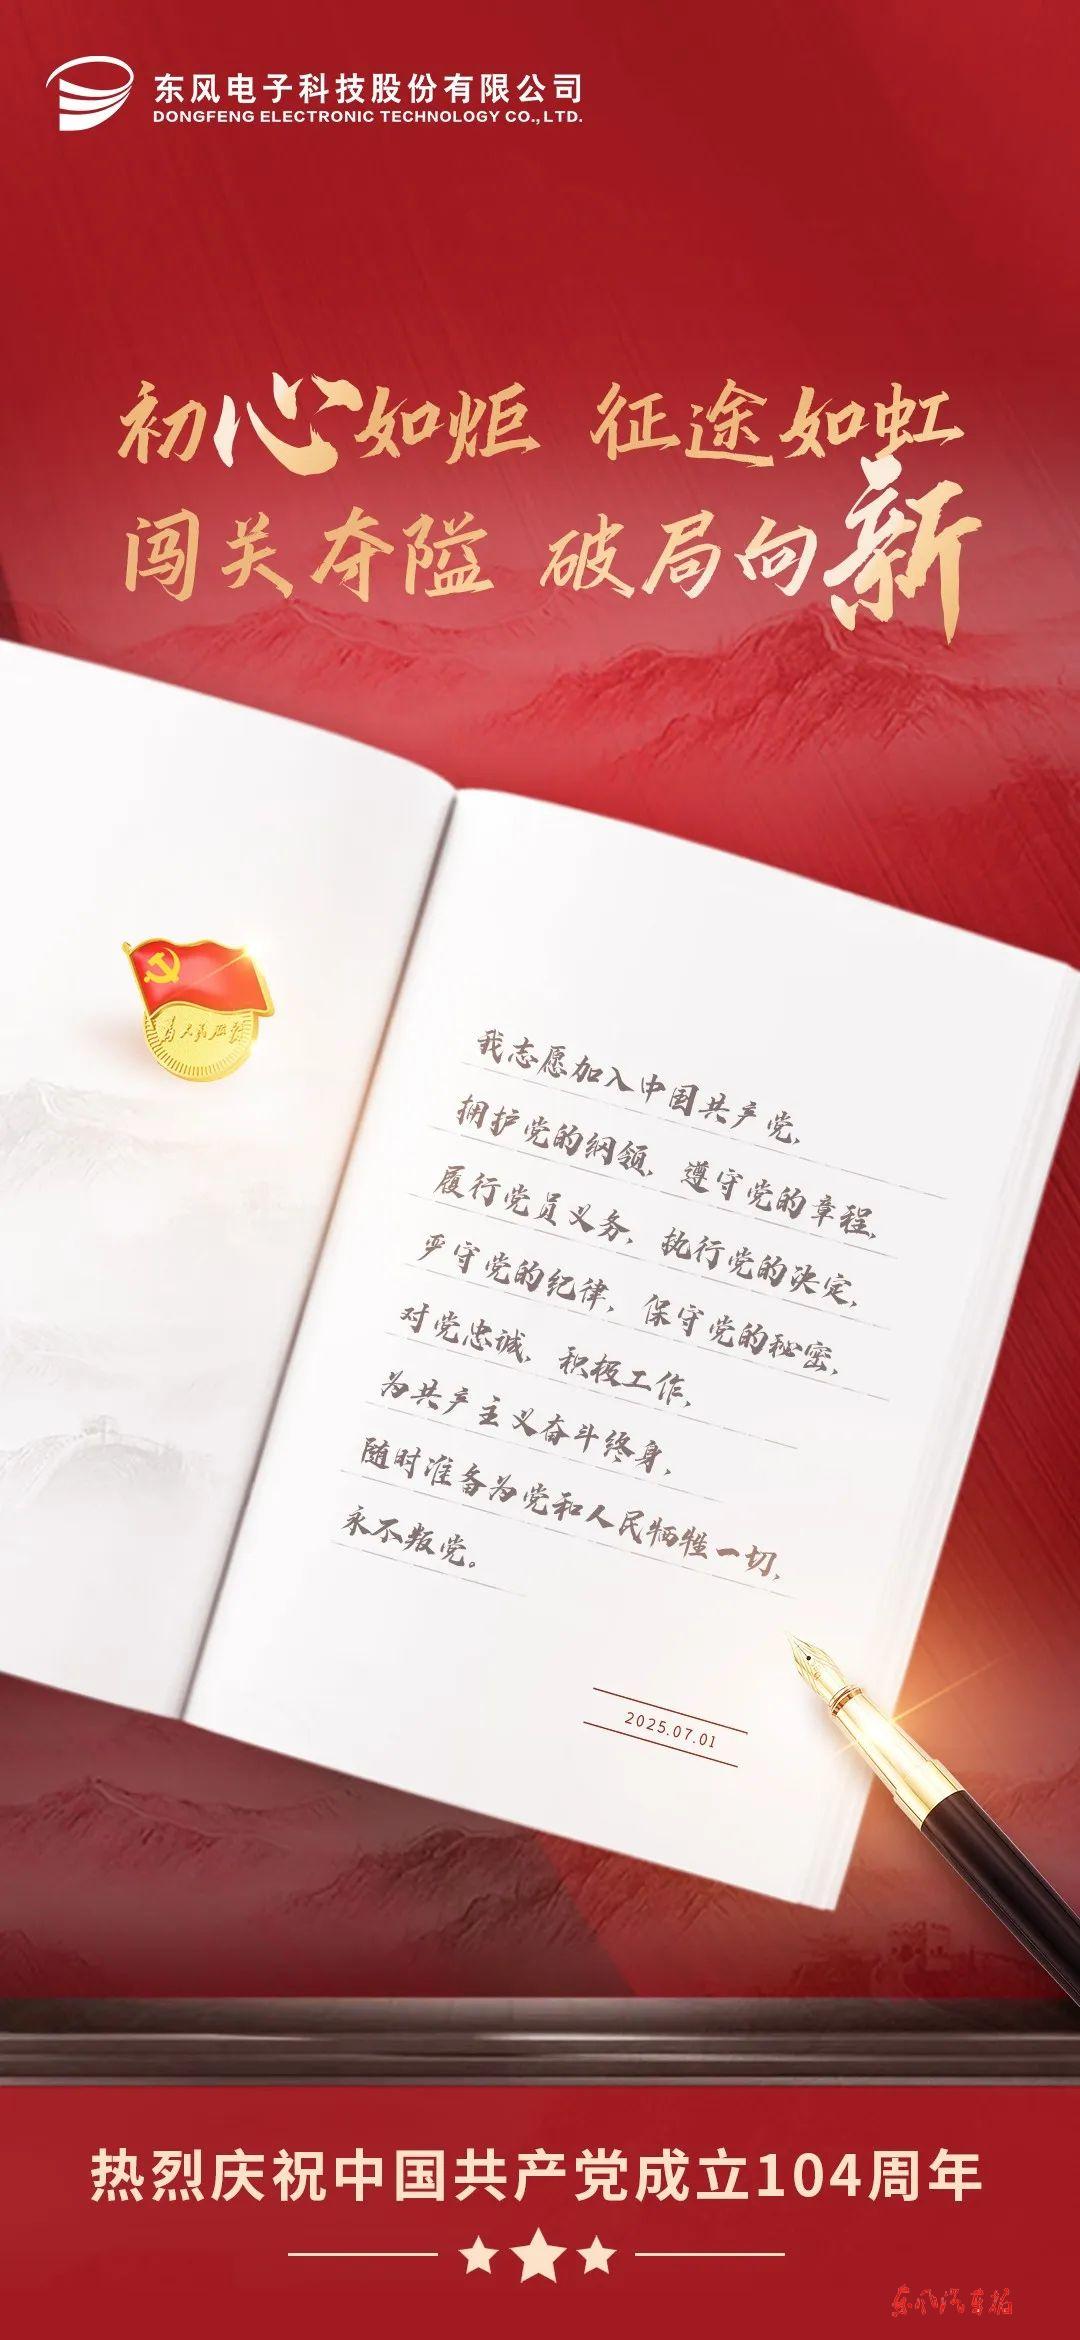 东风电子科技股份有限公司
DONGFENG ELECTRONIC TECHNOLOGY CO.,LTD.
初心如炬 征途如虹
闯关夺隘 破局向新
为人民服务
我志愿加入中国共产党，
拥护党的纲领，遵守党的章程，
履行党员义务，执行党的决定，
严守党的纪律，保守党的秘密，
对党忠诚，积极工作，
为共产主义奋斗终身，
随时准备为党和人民牺牲一切，
永不叛党。
2025.07.01
热烈庆祝中国共产党成立104周年
东风汽车报